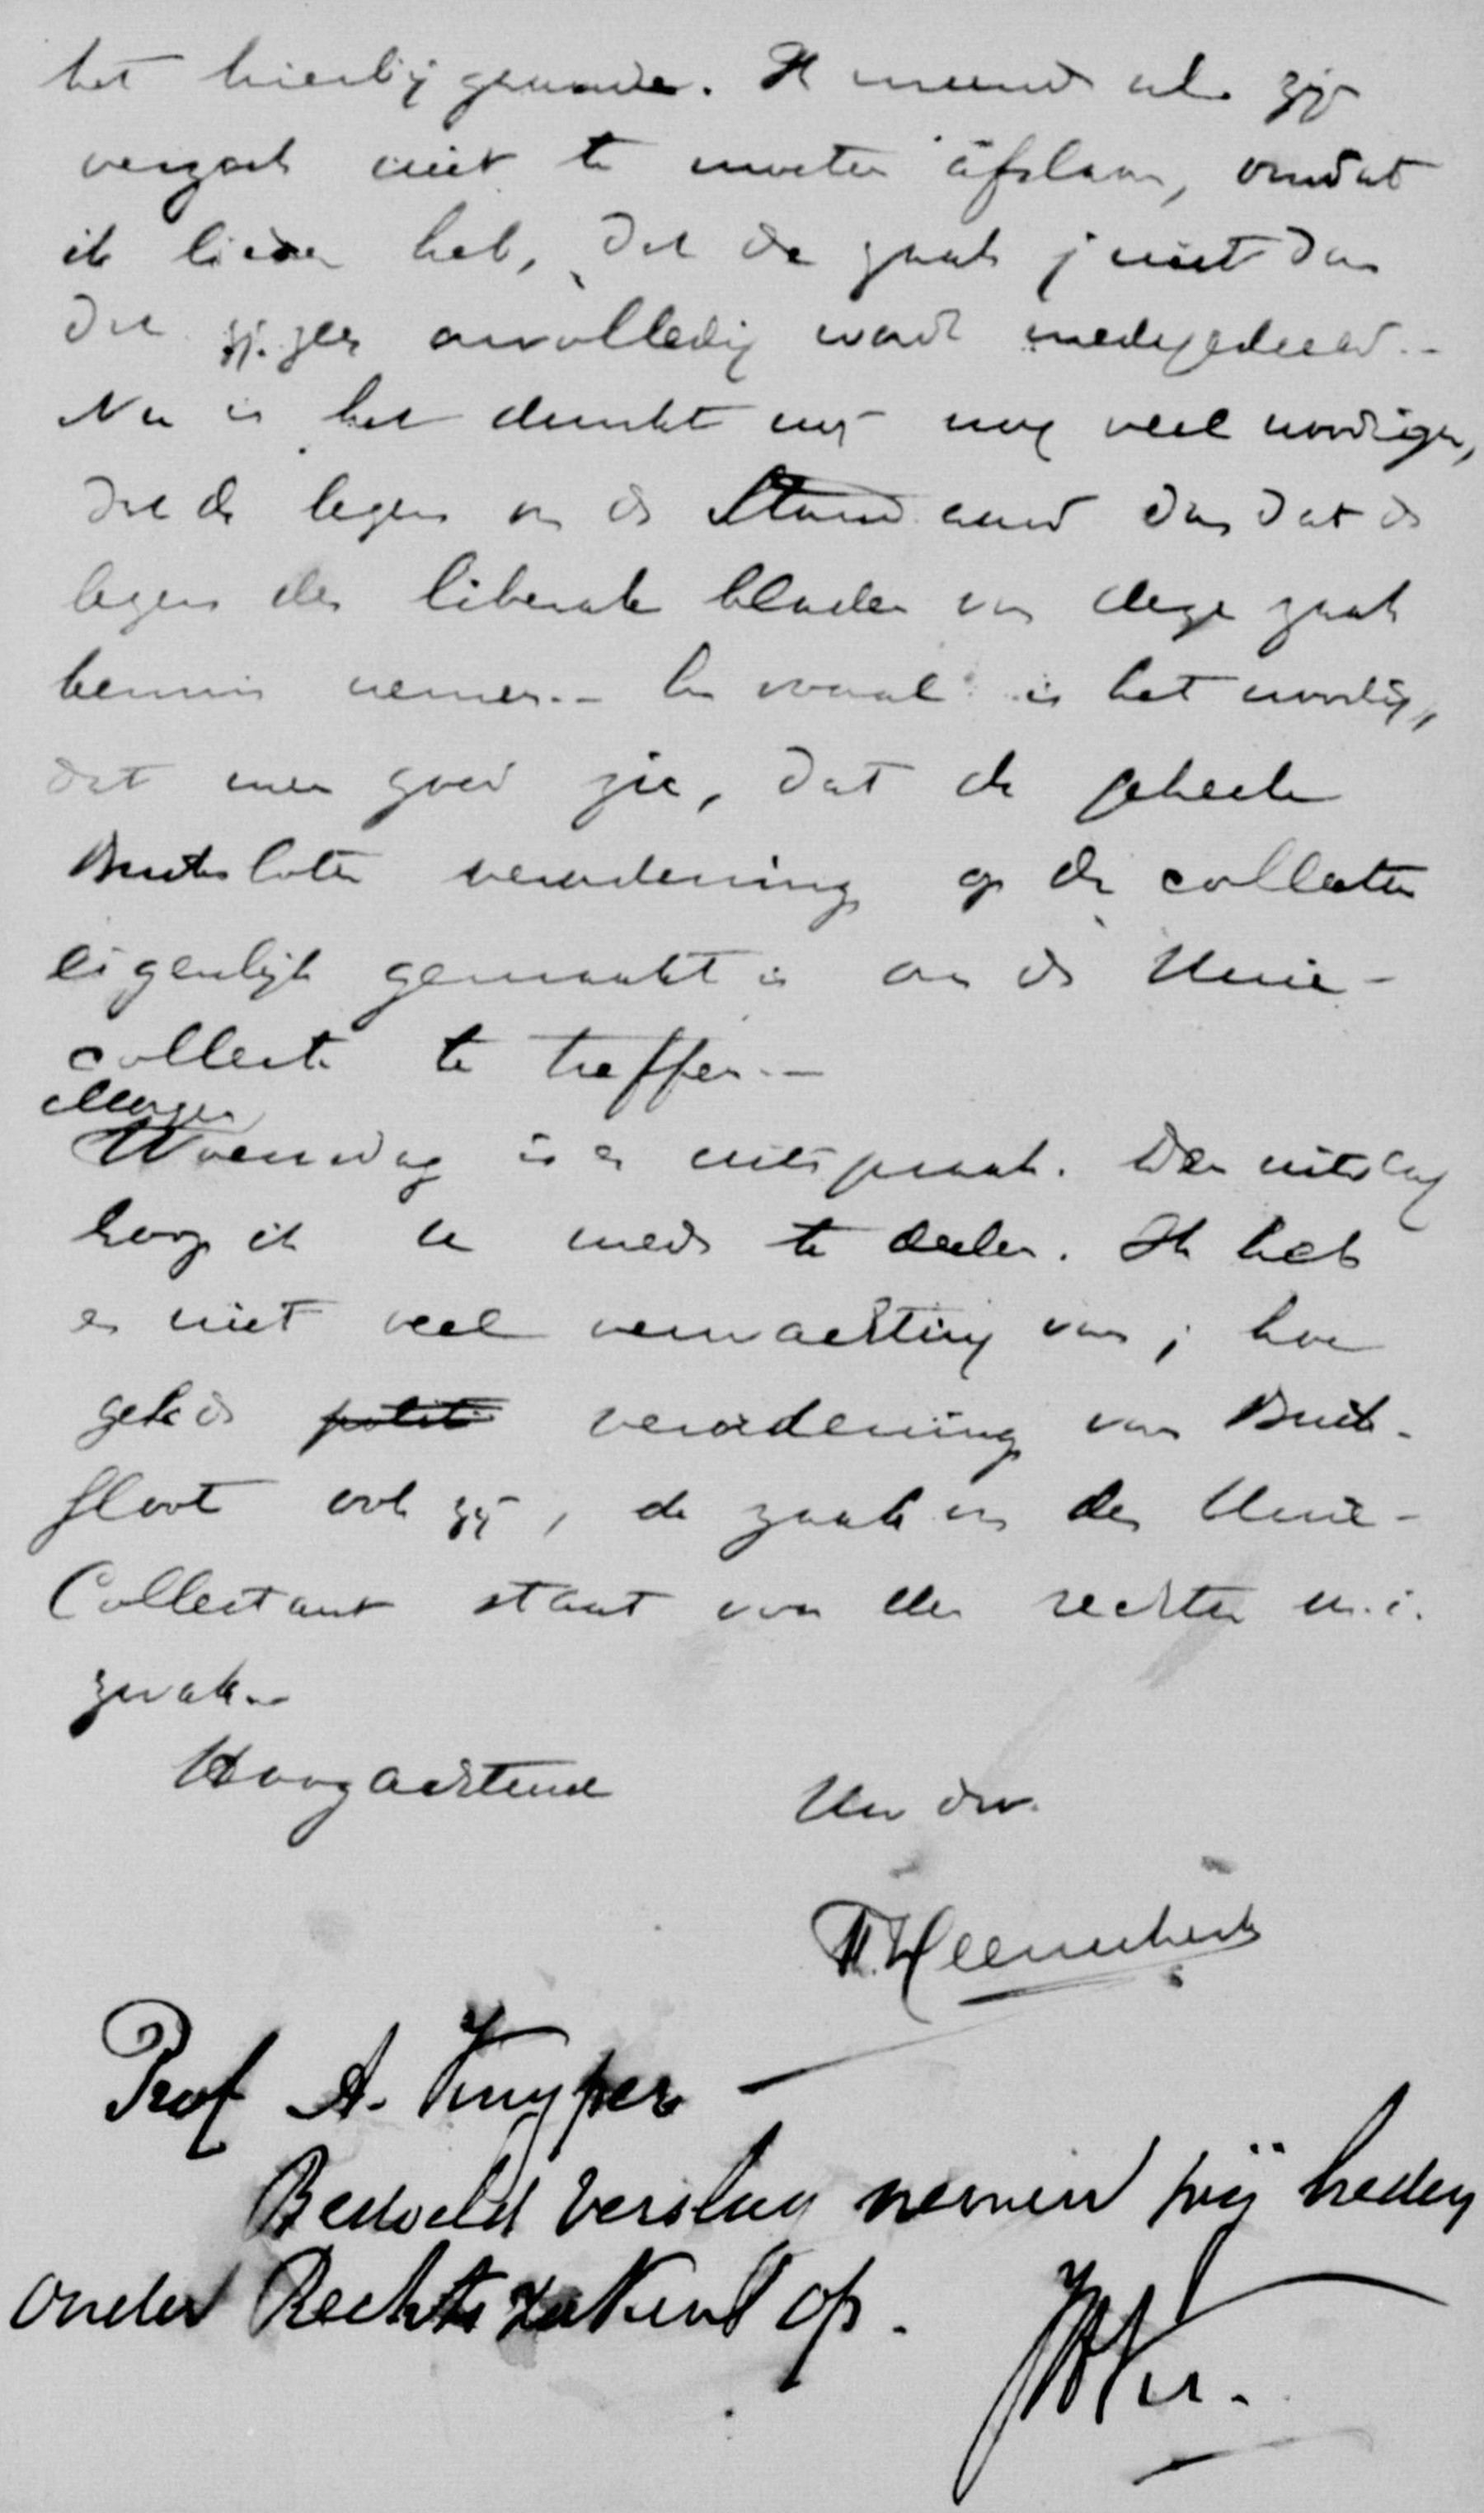 het hierbij gaande. Ik meende als zijn
verzoek niet te moeten afslaan, omdat
ik liever heb, dat de zaak juist dan
dat zij zeer onvolledig wordt medegedeeld. –
Nu is het dunkt mij nog veel noodiger,
dat de lezers van de Standaard dan dat de
lezers der liberale bladen van deze zaak
kennis nemen. – is het noodig,
dat men goed zie, dat de geheele
Buiksloter verordening op de collecten
eigenlijk gemaakt is om de Unie-
collecte te treffen. –
Morgen
Woensdag is er uitspraak. Den uitslag
hoop ik u mede te deelen. Ik heb
er niet veel verwachting van; hoe
gek de politi verordening van Buik-
sloot ook zij, de zaak van den Unie-
Collectant staat voor den rechter m.i.
zwak. –
Hoogachtend
Uw dw.
Th. Heemskerk
Prof A. Kuyper –
Bedoeld verslag nemen wij heden
onder Rechtszaken op.